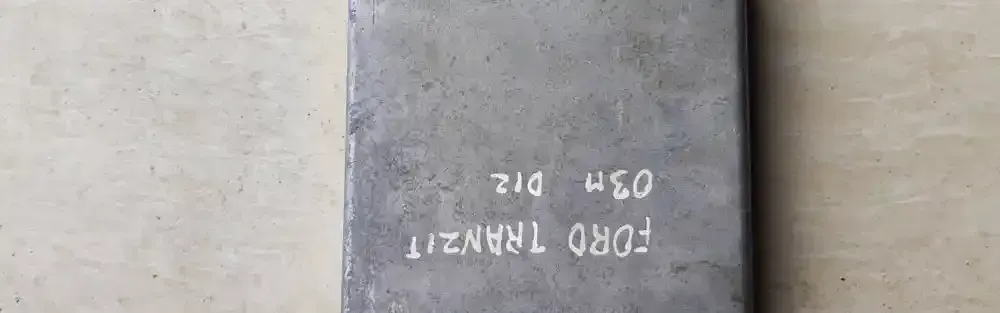 FORD TRANZIT
03M D12